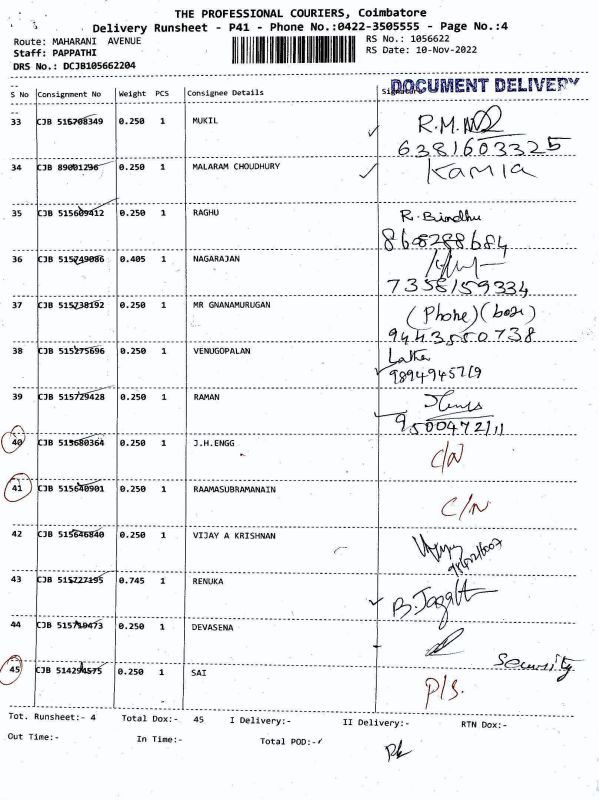 THE PROFESSIONAL COURIERS, Coimbatore
Delivery Runsheet - P41 - Phone No.:0422-3505555 - Page No.:4
Route: MAHARANI AVENUE
RS No.: 1056622
Staff: PAPPATHI
RS Date: 10-Nov-2022
DRS No.: DCJB105662204
DOCUMENT DELIVERY
S No Consignment No Weight PCS Consignee Details Signature
33 CJB 515708349 0.250 1 MUKIL R.M.
6381603325
34 CJB 89001296 0.250 1 MALARAM CHOUDHURY Kamla
35 CJB 515609412 0.250 1 RAGHU R. Bindhu
8608288684
36 CJB 515749086 0.405 1 NAGARAJAN
7358159334
37 CJB 515738192 0.250 1 MR GNANAMURUGAN (Phone) (box)
9443550738
38 CJB 515275696 0.250 1 VENUGOPALAN Latha
9894945719
39 CJB 515729428 0.250 1 RAMAN
9500472111
40 CJB 515680364 0.250 1 J.H.ENGG C/N
41 CJB 515640901 0.250 1 RAAMASUBRAMANAIN C/N
42 CJB 515646840 0.250 1 VIJAY A KRISHNAN
43 CJB 515727195 0.745 1 RENUKA
44 0.250 1 DEVASENA
Security
45 CJB 514294575 0.250 1 SAI P/S.
Tot. Runsheet:- 4 Total Dox:- 45 I Delivery:- II Delivery:- RTN Dox:-
Out Time:- In Time:- Total POD:-